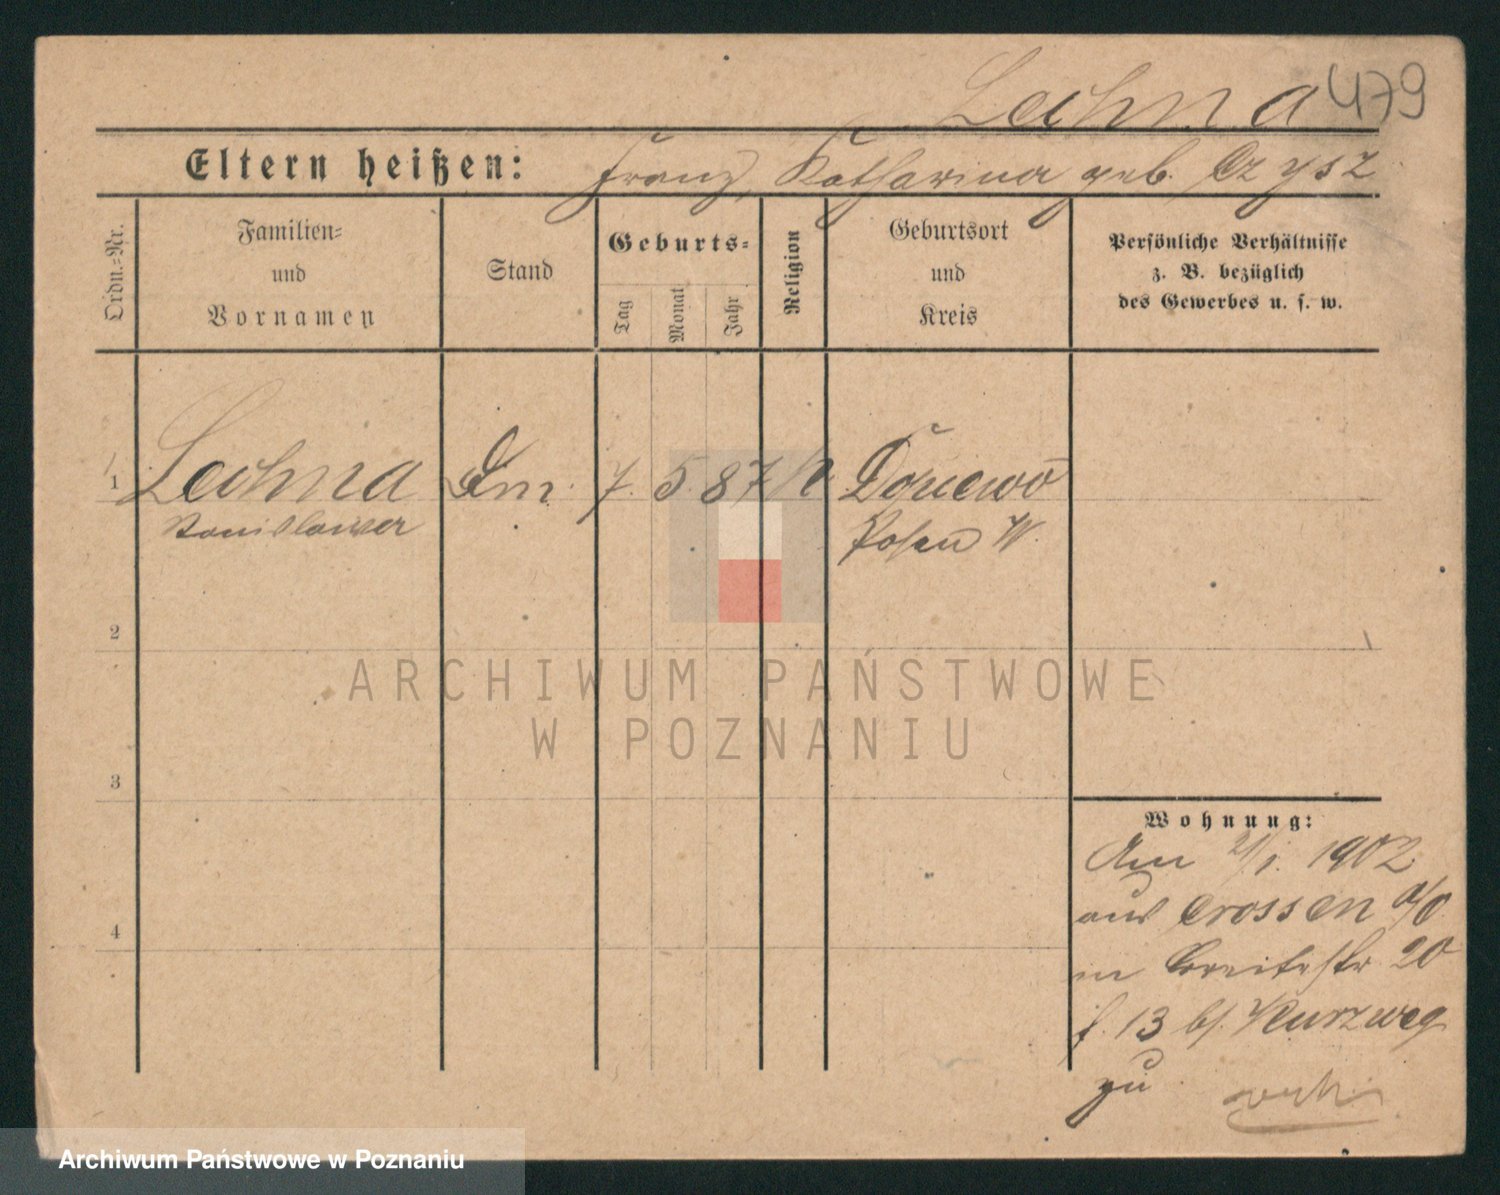 Lechna 479
Eltern heißen: Franz, Katharina geb. Czysz
Ordn.-Nr.
Familien-
und
Vornamen
Stand
Geburts-
Tag
Monat
Jahr
Religion
Geburtsort
und
Kreis
Persönliche Verhältnisse
z. B. bezüglich
des Gewerbes u. s. w.
1 Lechna 7. 5. 87
Posen W.
2
ARCHIWUM PAŃSTWOWE
W POZNANIU
3
4
Wohnung:
Am 21/1. 1902
aus Crossen a/O
in Breitestr 20
f. 13 b/. Kurzweg
zu
Archiwum Państwowe w Poznaniu